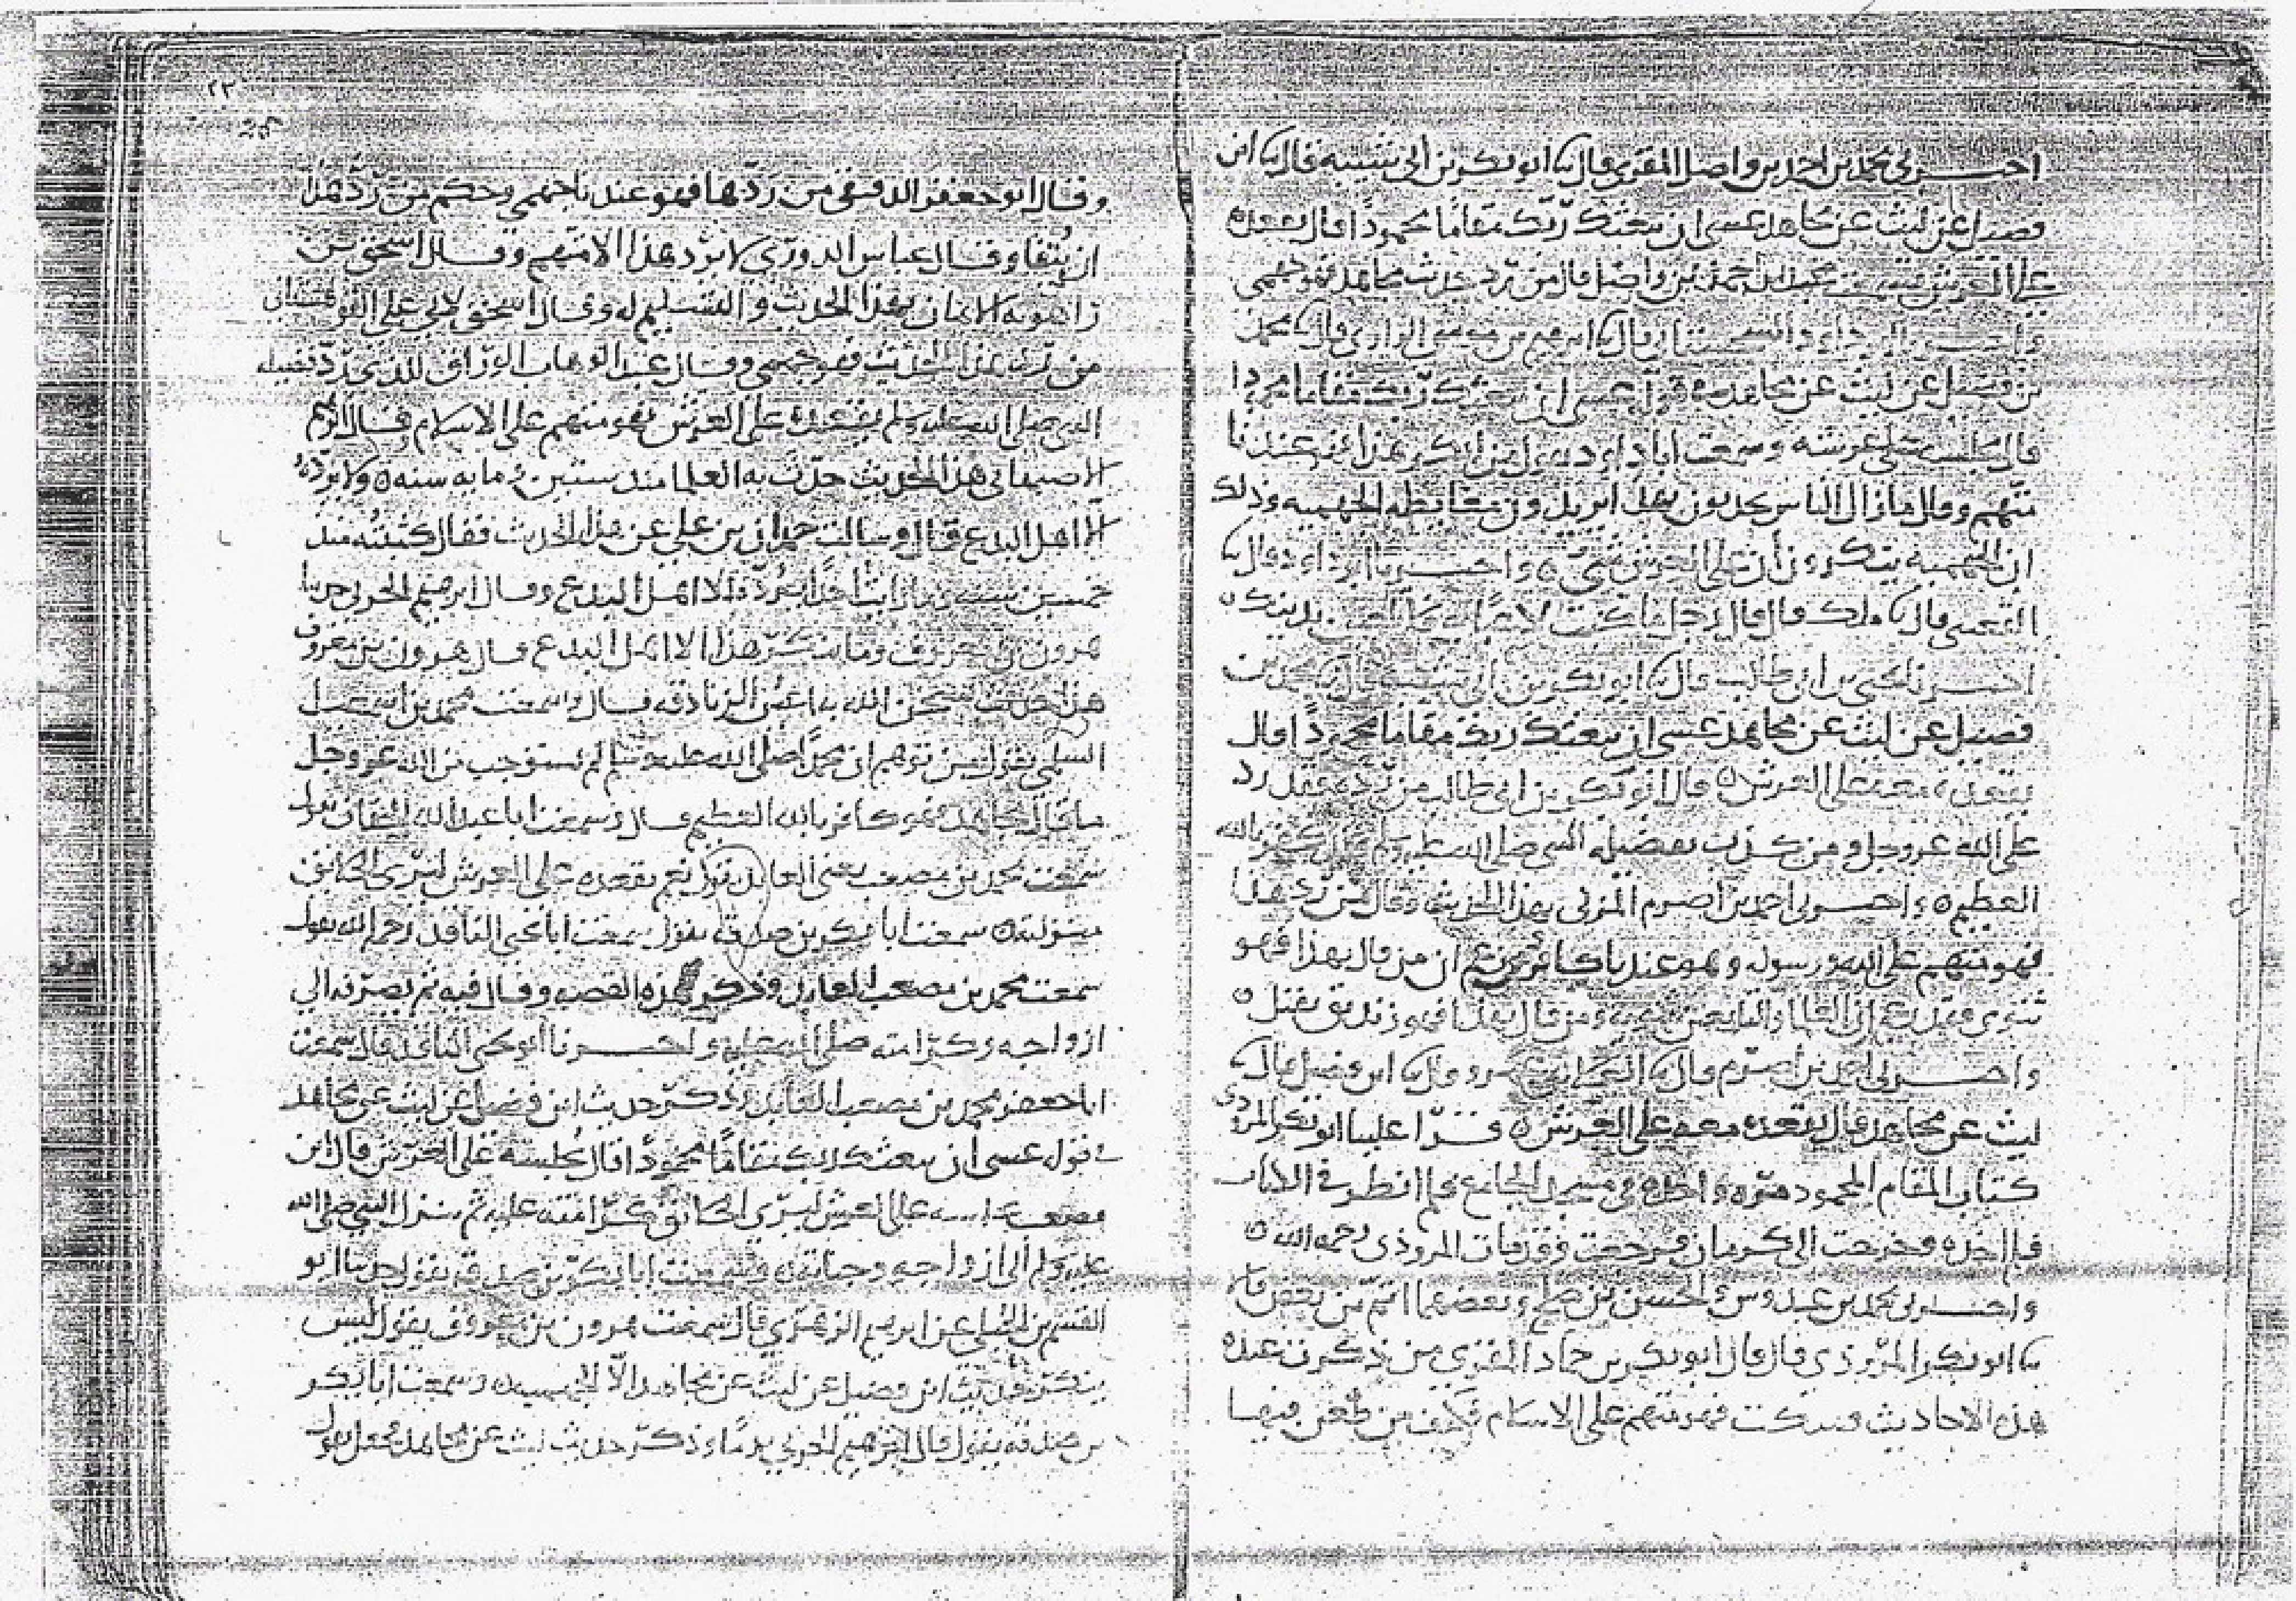 اخبرني محمد بن احمد بن واصل المقري قال ثنا أبو بكر بن أبي شيبة قال ثنا ابن
فضيل عن ليث عن مجاهد عسى ان يبعثك ربك مقاما محمودًا قال يقعده
على العرش بن احمد بن واصل قال من رد حديث مجاهد فهو جهمي
واخبرنا ابو داود السجستاني قال ثنا ابرهيم بن موسى الرازي قال ثنا محمد
بن فضيل عن ليث عن مجاهد في قوله عسى ان يبعثك ربك مقاما محمودا
قال يجلسه على عرشه وسمعت ابا داود يقول من انكر هذا فهو عندنا
متهم وقال ما زال الناس يحدثون بهذا يريدون مغايظة الجهمية وذلك
ان الجهمية ينكرون أن على العرش شيء ٥ واخبرنا أبو داود قال ثنا
القعنبي قال ثنا ملك قال قال رجل ما كنت لاعبا به فلا تلعبن بدينك ٥
اخبرنا يحيى بن ابي طالب قال ثنا ابو بكر بن ابي شيبة قال ثنا محمد بن
فضيل عن ليث عن مجاهد عسى ان يبعثك ربك مقاما محمودًا قال
يقعده معه على العرش ٥ قال ابو بكر بن ابي طالب من رده فقد رد
على الله عز وجل ومن كذب بفضيلة النبي صلى الله عليه وسلم فقد كفر بالله
العظيم ٥ واخبرني احمد بن اصرم المزني بهذا الحديث وقال من رد هذا
فهو متهم على الله ورسوله وهو عندنا كافر وزعم ان من قال بهذا فهو
ثنوي فقد زعم ان العلما والتابعين ثنوية ومن قال بهذا فهو زنديق يقتل ٥
واخبرني احمد بن أصرم قال ثنا قال ثنا ابن فضيل قال ثنا
ليث عن مجاهد قال يقعده معه على العرش ٥ قرا علينا ابو بكر المروذي
كتاب المقام المحمود في مسجد الجامع فلم انظر في الكتاب
وخرجت الى كرمان فرجعت وقد مات المروذي رحمه الله ٥
واخبرني محمد بن عبدوس والحسن بن صالح وبعضهما اتم من بعض قالا
ثنا ابو بكر المروذي قال قال ابو بكر بن حماد المقري من ذكرت عنده
هذه الاحاديث فسكت فهو متهم على الاسلام فكيف من طعن فيها
٢٣
وقال ابو جعفر الدقيقي من ردها فهو عندنا جهمي وحكم من رد هذا
ان يتقا وقال عباس الدوري لا يرد هذا الا متهم وقال اسحق بن
راهويه الايمان بهذا الحديث والتسليم له وقال اسحق لابي علي القوهستاني
من رد هذا الحديث فهو جهمي وقال عبد الوهاب الوراق للذي رد فضيلة
النبي صلى الله عليه وسلم يقعده على العرش فهو متهم على الاسلام وقال ابرهيم
الاصبهاني هذا الحديث حدث به العلما منذ ستين ومايه سنه ٥ ولا يرده
الا اهل البدع قال وسالت حمدان بن علي عن هذا الحديث فقال كتبته منذ
خمسين سنة وما رايت احدًا يرده الا اهل البدع وقال ابرهيم الحربي حدثنا
هرون بن معروف وما ينكر هذا الا اهل البدع قال هرون بن معروف
هذا حديث يسخن الله به اعين الزنادقه قال وسمعت محمد بن اسمعيل
السلمي يقول من توهم ان محمدًا صلى الله عليه وسلم لم يستوجب من الله عز وجل
ما قال مجاهد فهو كافر بالله العظيم قال وسمعت ابا عبد الله الخفاف يقول
سمعت محمد بن مصعب يعني العابد يقول نعم يقعده على العرش ليرى الخلائق
منزلته ٥ سمعت ابا بكر بن صدقة يقول سمعت ابا يحيى الناقد رحمه الله يقول
سمعت محمد بن مصعب العابد وذكر هذه القصه وقال فيه ثم يصرفه الى
ازواجه وكرامته صلى الله عليه واخبرنا أبو يحيى الناقد قال سمعت
ابا جعفر محمد بن مصعب العابد وذكر حديث ابن فضيل عن ليث عن مجاهد
في قوله عسى ان يبعثك ربك مقامًا محمودًا قال يجلسه على العرش قال ابن
مصعب يجلسه على العرش ليرى الخلائق كرامته عليه ثم ينزل النبي صلى الله
عليه وسلم الى ازواجه وجناته ٥ وسمعت ابا بكر بن صدقة يقول حدثنا ابو
القسم بن الجبلي عن ابرهيم الزهري قال سمعت هرون بن معروف يقول ليس
ينكر حديث ابن فضيل عن ليث عن مجاهد الا الجهمية ٥ وسمعت ابا بكر
بن صدقه يقول قال ابرهيم الحربي يومًا وذكر حديث ليث عن مجاهد فجعل يقول